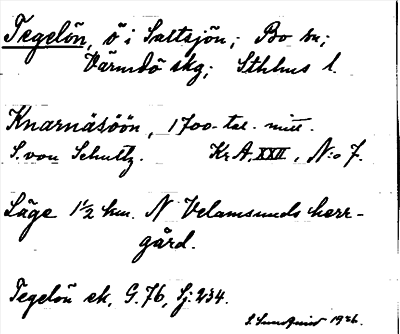 Tegelön, ö i Saltsjön; Bo sn;
Värmdö skg; Sthlms l.
Knarnäsöön, 1700-tal. mitt.
S. von Schultz. Kr A. XXII, N:o 7.
Läge 1½ km. N Velamsunds herr-
gård.
Tegelön ek, G. 76, Sj: 234.
1926.